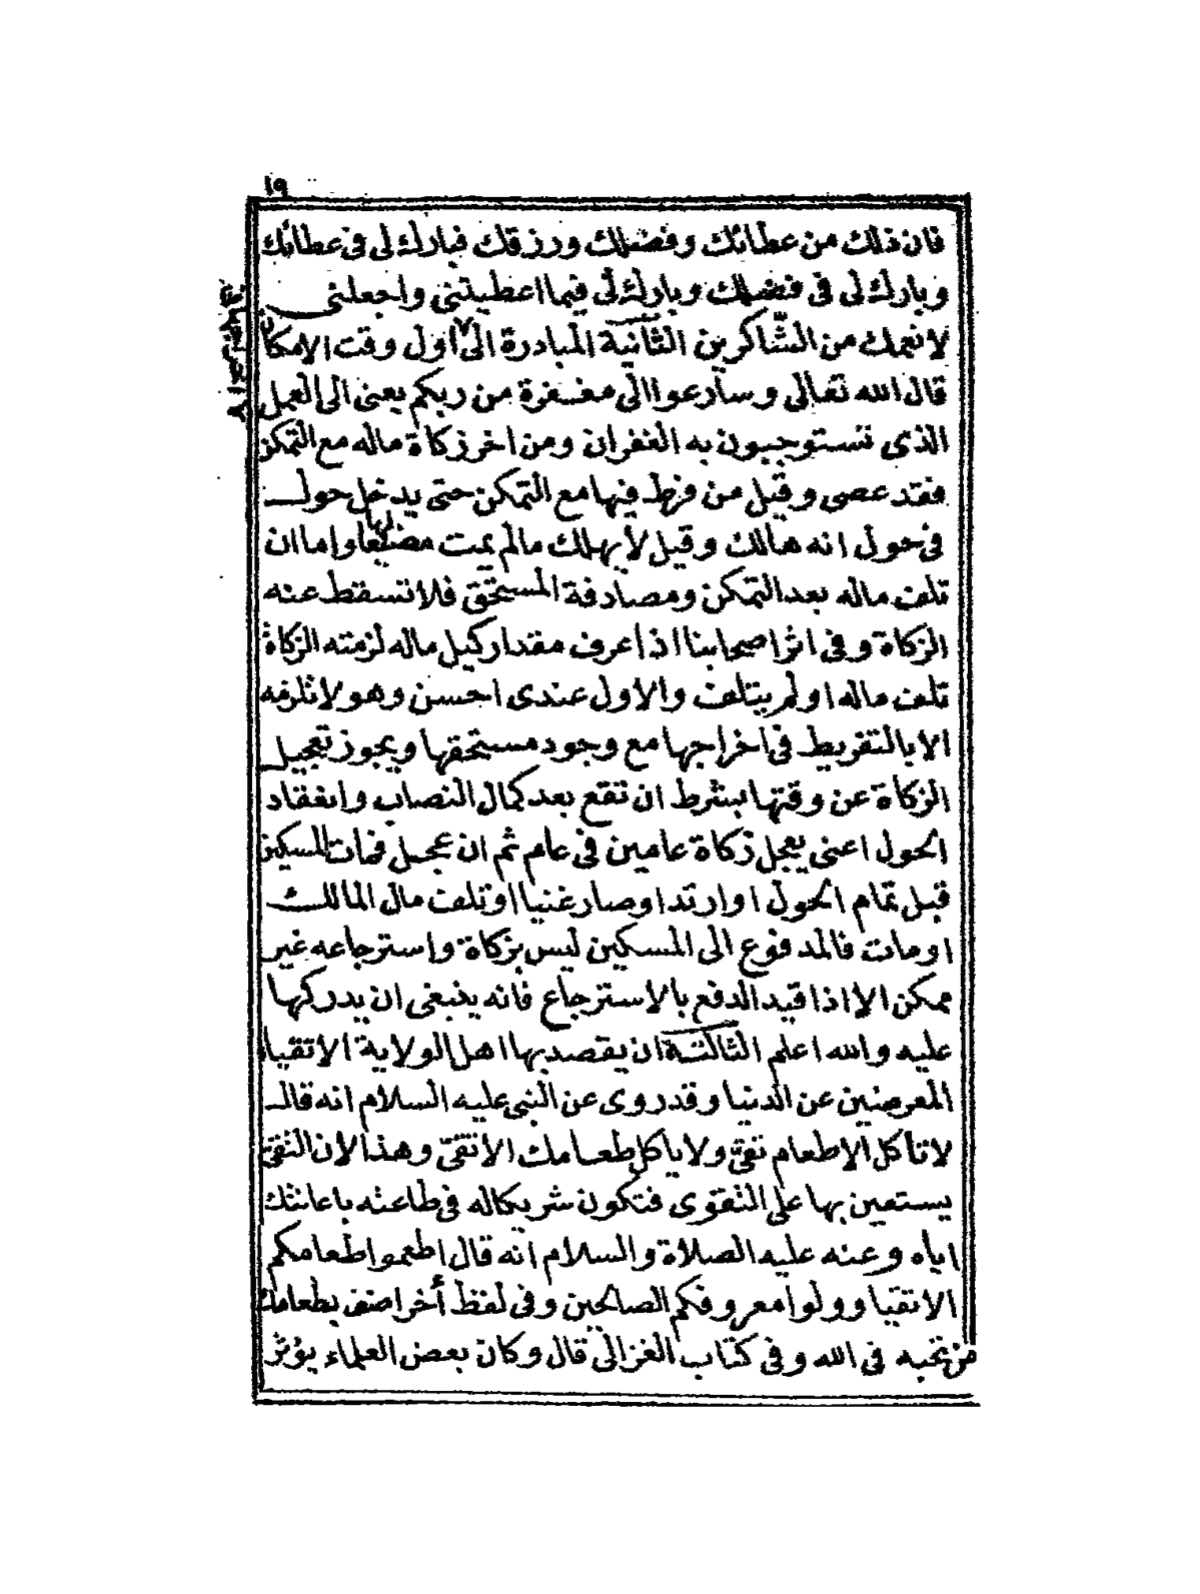 ١٩
فان ذلك من عطائك وفضلك ورزقك فبارك لى فى عطائك
وبارك لى فى فضلك وبارك لى فيما اعطيتنى واجعلنى
لانعمك من الشاكرين الثانية المبادرة الى اول وقت الامكان
قال الله تعالى وسارعوا الى مغفرة من ربكم يعنى الى العمل
الذى تستوجبون به الغفران ومن اخر زكاة ماله مع التمكن
فقد عصى وقيل من فرط فيها مع التمكن حتى يدخل حول
فى حول انه هالك وقيل لا يهلك مالم يمت مضيعا لها واما ان
تلف ماله بعد التمكن ومصادفة المستحق فلا تسقط عنه
الزكاة وفى اثر اصحابنا اذا عرف مقدار كيل ماله لزمته الزكاة
تلف ماله او لم يتلف والاول عندى احسن وهو لا تلزمه
الا بالتفريط فى اخراجها مع وجود مستحقها ويجوز تعجيل
الزكاة عن وقتها بشرط ان تقع بعد كمال النصاب وانعقاد
الحول اعنى يعجل زكاة عامين فى عام ثم ان عجل فمات المسكين
قبل تمام الحول او ارتد او صار غنيا او تلف مال المالك
او مات فالمدفوع الى المسكين ليس بزكاة واسترجاعه غير
ممكن الا اذا قيد الدفع بالاسترجاع فانه ينبغى ان يدركها
عليه والله اعلم الثالثة ان يقصد بها اهل الولاية الاتقيا
المعرضين عن الدنيا وقد روى عن النبى عليه السلام انه قال
لا تأكل الا طعام تقىّ ولا ياكل طعامك الا تقىّ وهذا لان التقىّ
يستعين بها على التقوى فتكون شريكا له فى طاعته باعانتك
اياه وعنه عليه الصلاة والسلام انه قال اطعموا طعامكم
الاتقيا وولوا معروفكم الصالحين وفى لفظ أخر اضف بطعامك
من تحبه فى الله وفى كتاب الغزالى قال وكان بعض العلماء يؤثر